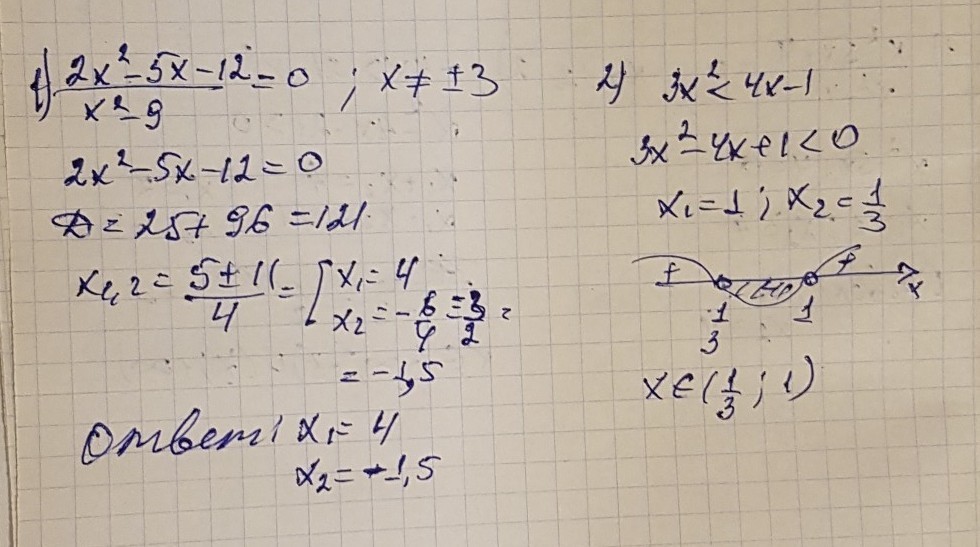 1) (2x² - 5x - 12)/(x² - 9) = 0 ; x ≠ ±3
2x² - 5x - 12 = 0
D = 25 + 96 = 121
x₁,₂ = (5 ± 11)/4 = [ x₁ = 4
x₂ = -6/4 = 3/2 =
= -1,5
Ответ: x₁ = 4
x₂ = -1,5
2) 3x² < 4x - 1
3x² - 4x + 1 < 0
x₁ = 1 ; x₂ = 1/3
+ - + x
1/3 1
x ∈ (1/3 ; 1)